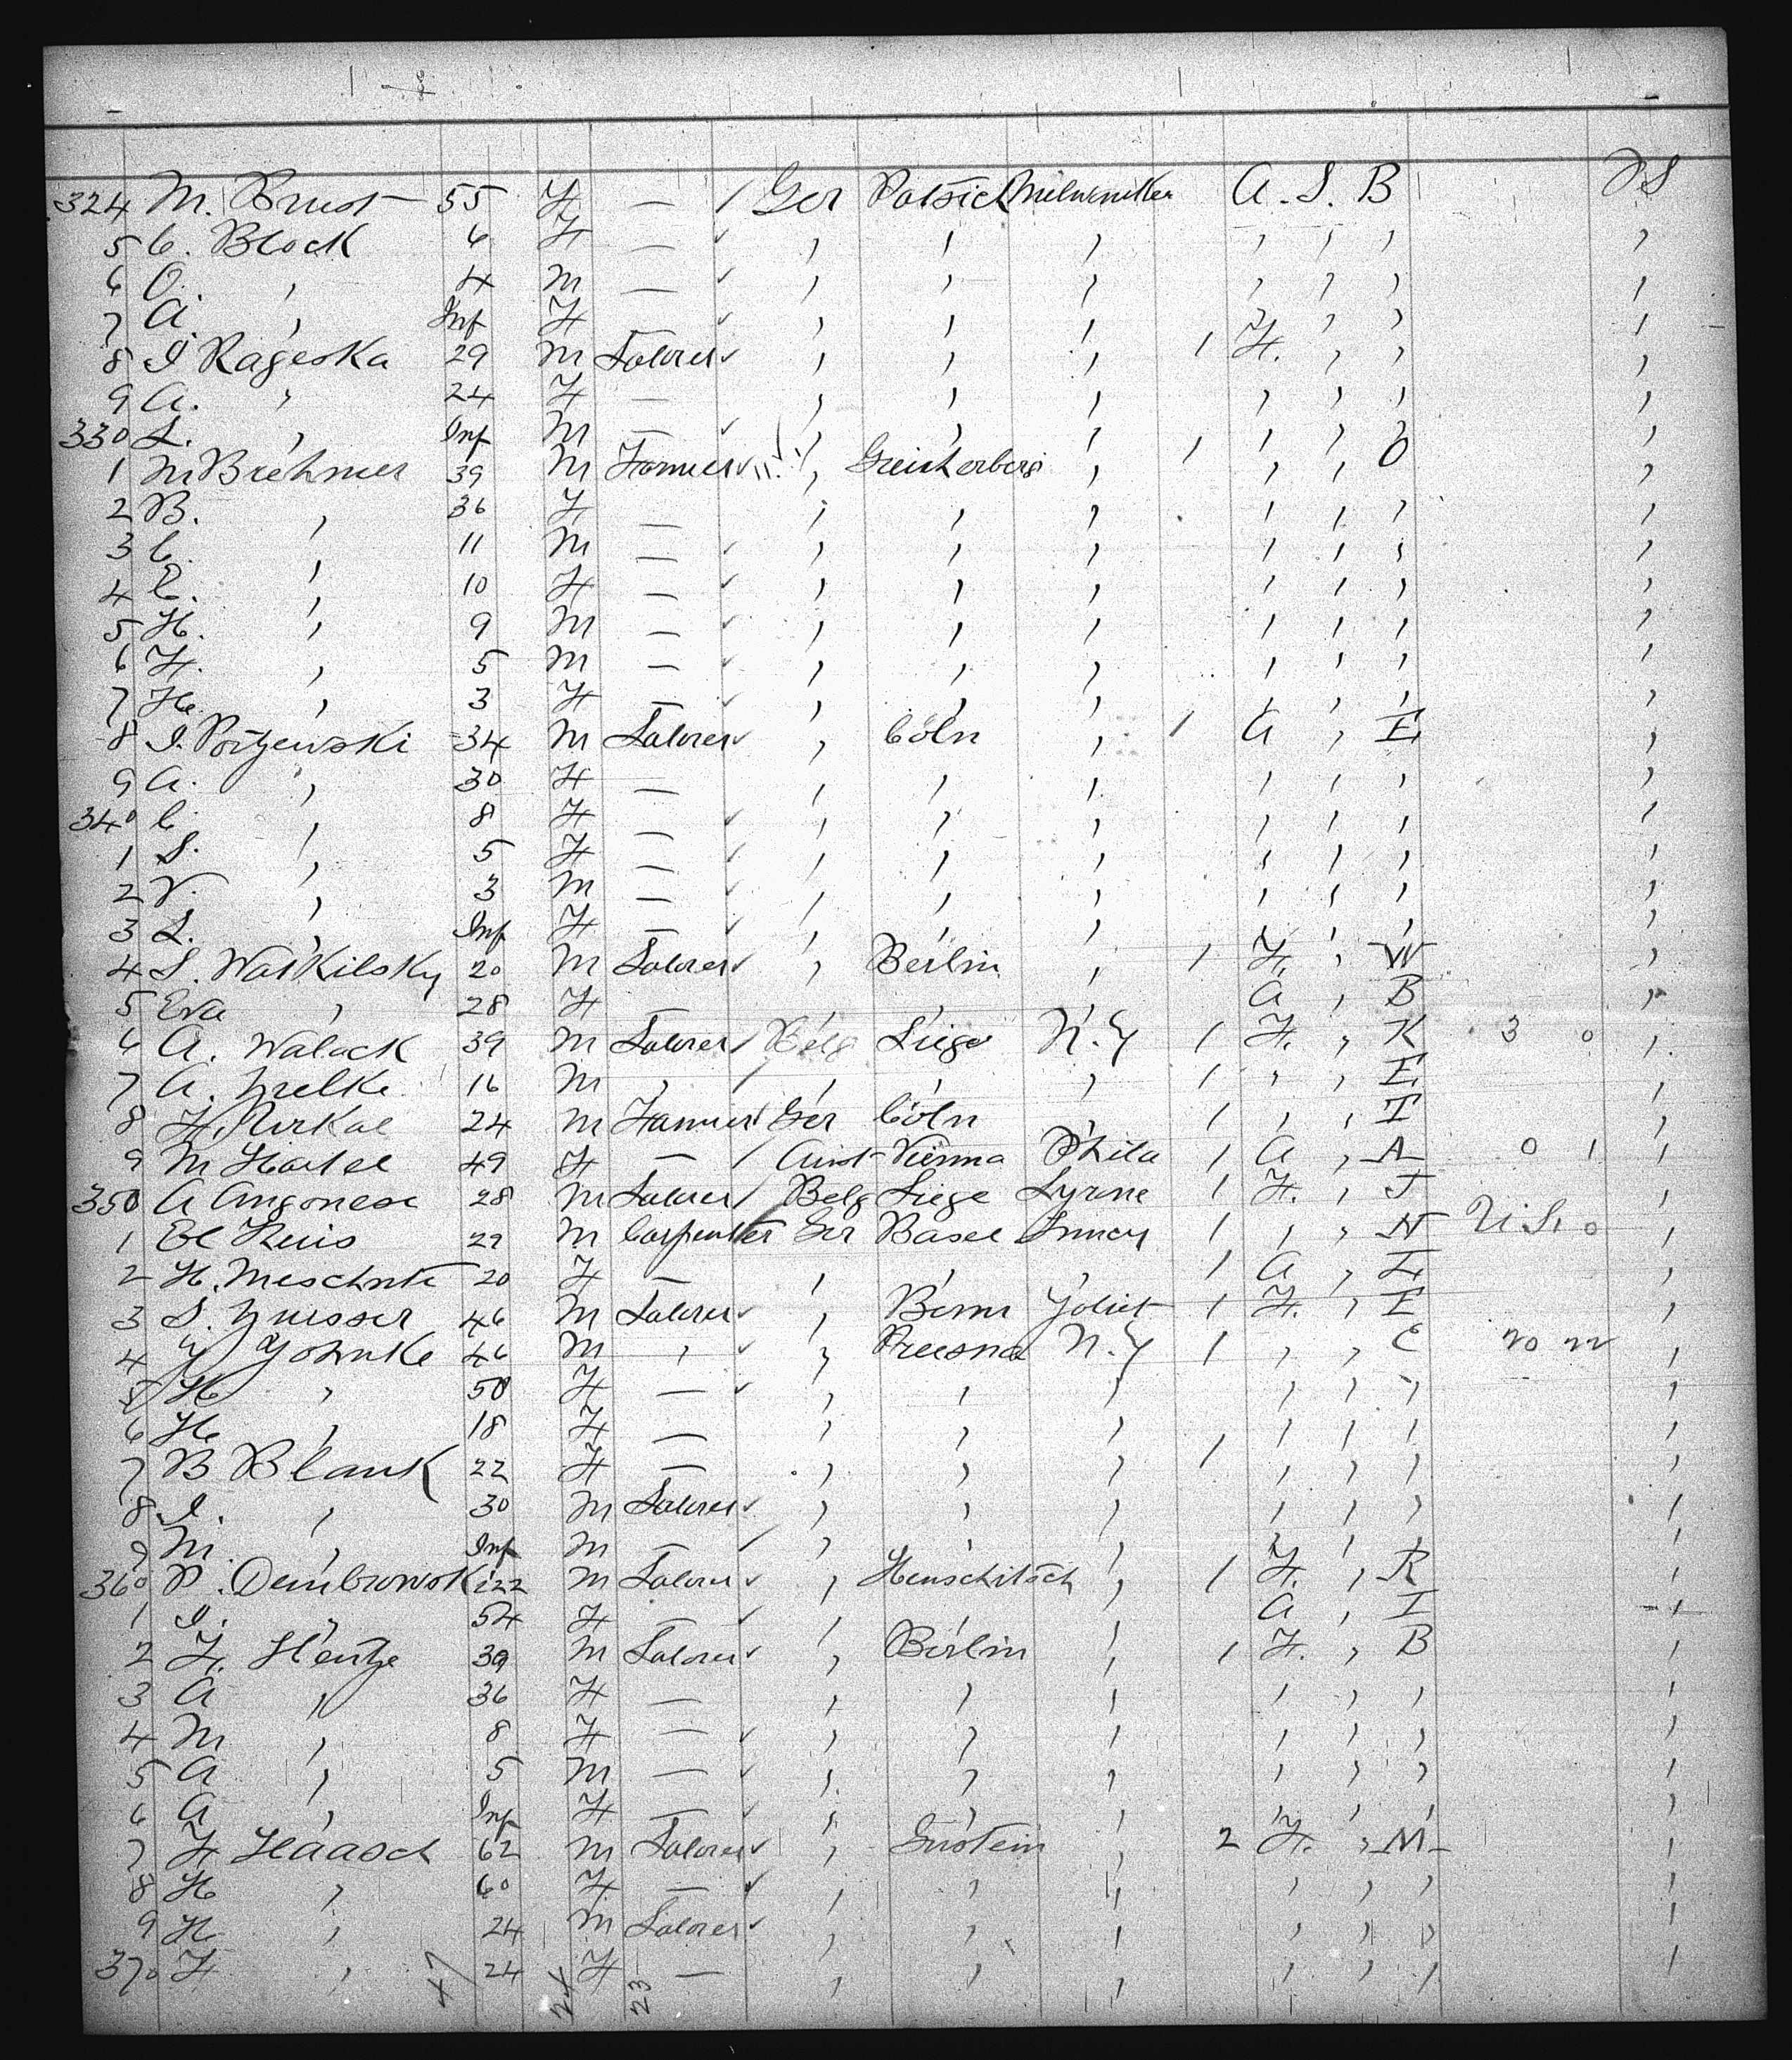 324 M. Brust 55 F — / Ger Patsick Milwaukee A. S. B DS
5 C. Block 6 F — ✓ , , , , , , ,
6 O. , 4 M — ✓ , , , , , , ,
7 A. , Inf F — ✓ , , , , , , ,
8 I Rageska 29 M Laborer ✓ , , , 1 F. , , ,
9 A. , 24 F — , , , , , , ,
330 L. , Inf M — ✓ , , , , , , ,
1 M Brehmer 39 M Farmer ✓ , , 1 , , O ,
2 B. , 36 F — , , , , , , ,
3 C. , 11 M — ✓ , , , , , , ,
4 E. , 10 F — ✓ , , , , , , ,
5 H. , 9 M — ✓ , , , , , , ,
6 F. , 5 M — ✓ , , , , , , ,
7 He. , 3 F — ✓ , , , , , , ,
8 I. Portzewski 34 M Laborer ✓ , Cöln , 1 A , E ,
9 A. , 30 F — , , , , , , ,
340 C. , 8 F — ✓ , , , , , , ,
1 S. , 5 F — ✓ , , , , , , ,
2 V. , 3 M — ✓ , , , , , , ,
3 L. , Inf F — ✓ , , , , , , ,
4 S. Waskilsky 20 M Laborer ✓ , Berlin , 1 F. , W ,
5 Eva , 28 F — , , , A , B ,
6 A. Walack 39 M Laborer / Belg Liege N.Y 1 F. , K 3 0 ,
7 A. 16 M , / , , , 1 , , E ,
8 F. 24 M Farmer / Ger Cöln , 1 , , T ,
9 M Hartel 49 F — / Aust Vienna Phila 1 A , A 0 1 ,
350 A Angonese 28 M Laborer / Belg Liege 1 F. , J ,
1 29 M Carpenter Ger Basel 1 , , N U.S. 0 ,
2 H. 20 F — , , , 1 A , ,
3 S. 46 M Laborer ✓ , Joliet 1 F. , E ,
4 J Johnke 46 M , ✓ , N.Y 1 , , E 20 ,
5 H , 50 F — ✓ , , , , , , ,
6 He , 18 F — , , , , , , ,
7 B Blank 22 F — , , , 1 , , , ,
8 I. , 30 M Laborer ✓ , , , , , , ,
9 M. , Inf M — ✓ , , , , , , ,
360 P. Dembrowski 22 M Laborer ✓ , , 1 F. , R ,
1 I. , 54 F — ✓ , , , A , I ,
2 F. Hentze 39 M Laborer ✓ , Berlin , 1 F. , B ,
3 A , 36 F — , , , , , , ,
4 M , 8 F — ✓ , , , , , , ,
5 A , 5 M — ✓ , , , , , , ,
6 A , Inf F — ✓ , , , , , , ,
7 F Haasch 62 M Laborer ✓ , , 2 F. , M ,
8 H , 60 F — ✓ , , , , , , ,
9 H , 24 M Laborer ✓ , , , , , , ,
370 F , 24 F — , , , , , , ,
47 24 23